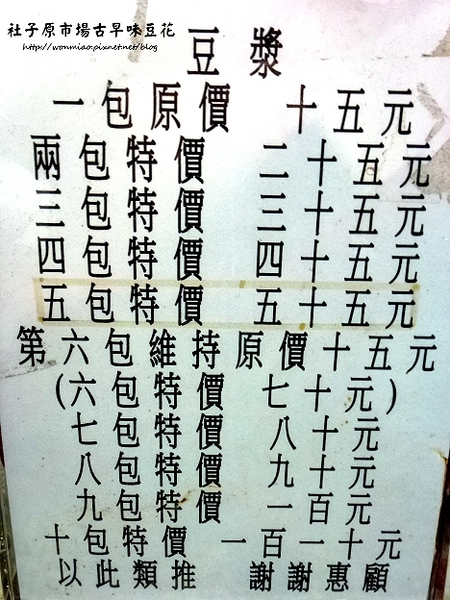 社子原市場古早味豆花
http://wonmiao.pixnet.net/blog
豆漿
一包原價 十五元
兩包特價 二十五元
三包特價 三十五元
四包特價 四十五元
五包特價 五十五元
第六包維持原價十五元
(六包特價 七十元)
七包特價 八十元
八包特價 九十元
九包特價 一百元
十包特價 一百一十元
以此類推 謝謝惠顧